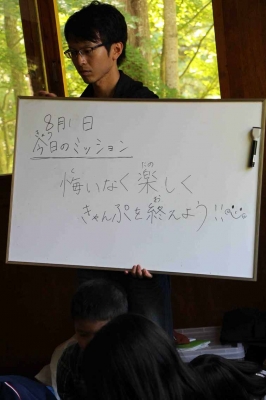 8月1日
今日のミッション
悔いなく楽しく
きゃんぷを終えよう!!